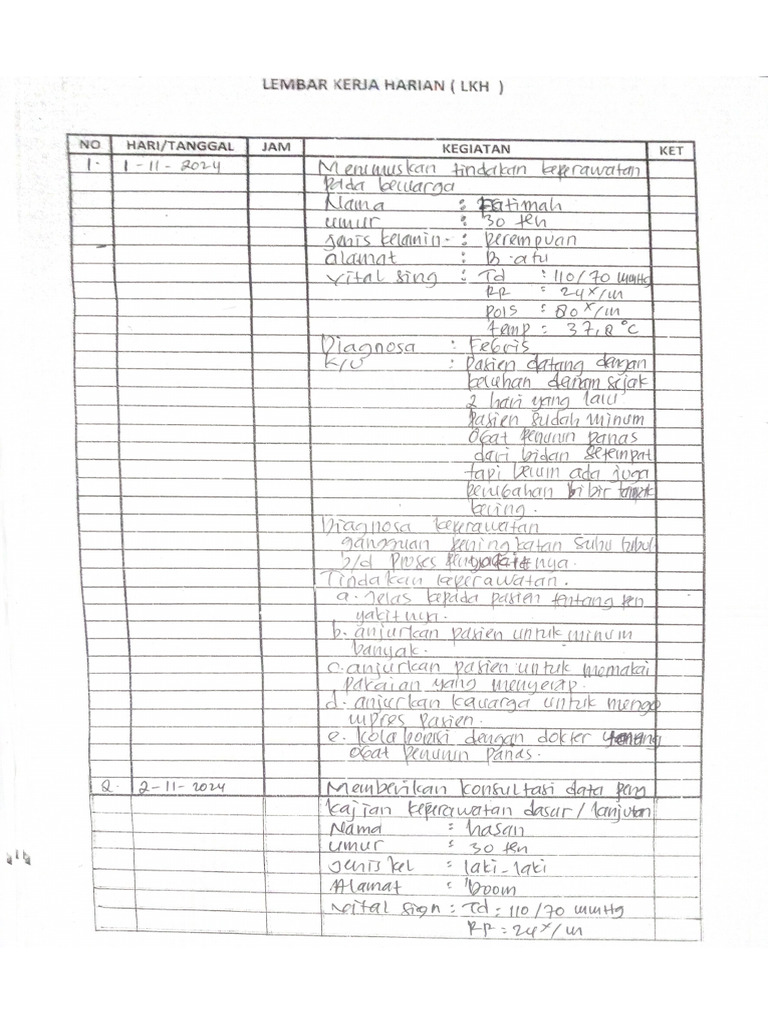 LEMBAR KERJA HARIAN ( LKH )
NO HARI/TANGGAL JAM KEGIATAN KET
1. 1-11-2024 Merumuskan tindakan keperawatan
pada keluarga
Nama : Fatimah
umur : 30 thn
jenis kelamin : perempuan
alamat : B. atu
Vital sing : Td : 110/70 mmHg
RR = 24x/m
pols = 80x/m
temp = 37,8°c
Diagnosa : Febris
K/U : Pasien datang dengan
keluhan demam sejak
2 hari yang lalu
pasien sudah minum
obat penurun panas
dari bidan setempat
tapi belum ada juga
perubahan bibir tampak
kering.
Diagnosa keperawatan
gangguan peningkatan suhu tubuh
b/d proses penyakitnya.
Tindakan keperawatan.
a. jelas kepada pasien tentang pen
yakitnya.
b. anjurkan pasien untuk minum
banyak.
c. anjurkan pasien untuk memakai
pakaian yang menyerap.
d. anjurkan kaluarga untuk mengo
mpres pasien.
e. kolaborasi dengan dokter tentang
obat penurun panas.
2. 2-11-2024 Memberikan konsultasi data peng
kajian keperawatan dasar/lanjutan
Nama : hasan
umur : 30 thn
jenis kel : laki-laki
Alamat : boom
Vital sign : Td : 110/70 mmHg
RR = 24x/m